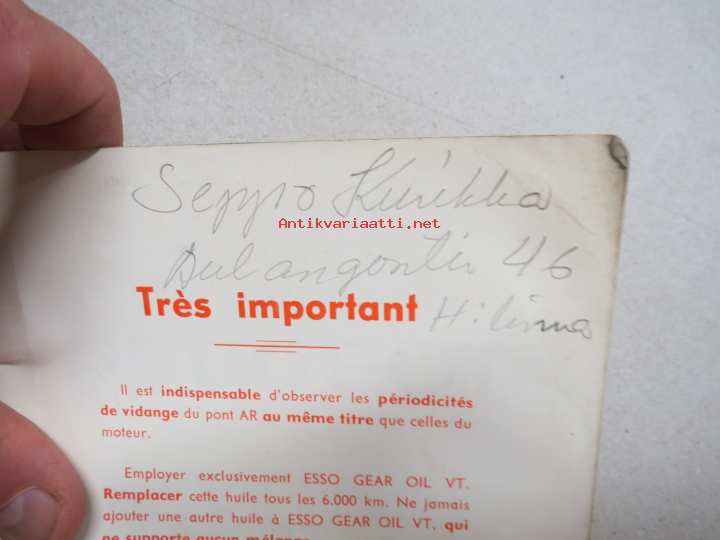 Seppo Kurikka
Antikvariaatti.net
Aulangontie 46
Très important
H:linna
Il est indispensable d'observer les périodicités
de vidange du pont AR au même titre que celles du
moteur.
Employer exclusivement ESSO GEAR OIL VT.
Remplacer cette huile tous les 6.000 km. Ne jamais
ajouter une autre huile à ESSO GEAR OIL VT, qui
ne supporte aucun mélange